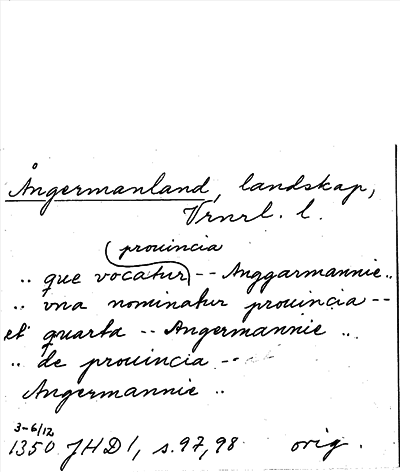 Ångermanland, landskap,
Vrnrl. l.
prouincia
.. que vocatur -- Anggarmannie ..
.. vna nominatur prouincia --
et quarta -- Angermannie ..
.. de prouincia --
Angermannie ..
3-6/12
1350 JHD 1, s. 97, 98 orig.